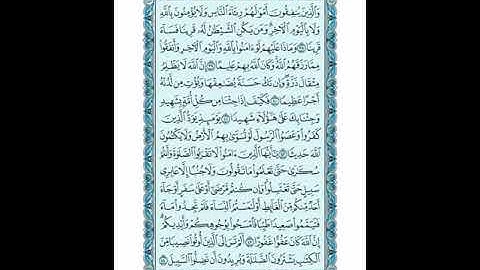 وَالَّذِينَ يُنفِقُونَ أَمْوَالَهُمْ رِئَاءَ النَّاسِ وَلَا يُؤْمِنُونَ بِاللَّهِ
وَلَا بِالْيَوْمِ الْآخِرِ وَمَن يَكُنِ الشَّيْطَانُ لَهُ قَرِينًا فَسَاءَ
قَرِينًا ۝٣٨ وَمَاذَا عَلَيْهِمْ لَوْ ءَامَنُوا بِاللَّهِ وَالْيَوْمِ الْآخِرِ وَأَنفَقُوا
مِمَّا رَزَقَهُمُ اللَّهُ وَكَانَ اللَّهُ بِهِمْ عَلِيمًا ۝٣٩ إِنَّ اللَّهَ لَا يَظْلِمُ
مِثْقَالَ ذَرَّةٍ وَإِن تَكُ حَسَنَةً يُضَاعِفْهَا وَيُؤْتِ مِن لَّدُنْهُ
أَجْرًا عَظِيمًا ۝٤٠ فَكَيْفَ إِذَا جِئْنَا مِن كُلِّ أُمَّةٍ بِشَهِيدٍ
وَجِئْنَا بِكَ عَلَىٰ هَٰؤُلَاءِ شَهِيدًا ۝٤١ يَوْمَئِذٍ يَوَدُّ الَّذِينَ
كَفَرُوا وَعَصَوُا الرَّسُولَ لَوْ تُسَوَّىٰ بِهِمُ الْأَرْضُ وَلَا يَكْتُمُونَ
اللَّهَ حَدِيثًا ۝٤٢ يَا أَيُّهَا الَّذِينَ ءَامَنُوا لَا تَقْرَبُوا الصَّلَاةَ وَأَنتُمْ
سُكَارَىٰ حَتَّىٰ تَعْلَمُوا مَا تَقُولُونَ وَلَا جُنُبًا إِلَّا عَابِرِي
سَبِيلٍ حَتَّىٰ تَغْتَسِلُوا وَإِن كُنتُم مَّرْضَىٰ أَوْ عَلَىٰ سَفَرٍ أَوْ جَاءَ
أَحَدٌ مِّنكُم مِّنَ الْغَائِطِ أَوْ لَامَسْتُمُ النِّسَاءَ فَلَمْ تَجِدُوا مَاءً
فَتَيَمَّمُوا صَعِيدًا طَيِّبًا فَامْسَحُوا بِوُجُوهِكُمْ وَأَيْدِيكُمْ
إِنَّ اللَّهَ كَانَ عَفُوًّا غَفُورًا ۝٤٣ أَلَمْ تَرَ إِلَى الَّذِينَ أُوتُوا نَصِيبًا مِّنَ
الْكِتَابِ يَشْتَرُونَ الضَّلَالَةَ وَيُرِيدُونَ أَن تَضِلُّوا السَّبِيلَ ۝٤٤